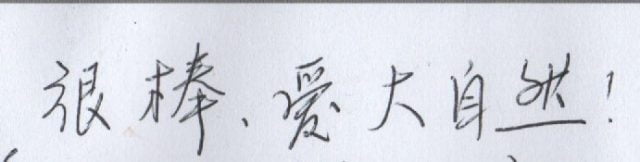 很棒、爱大自然！